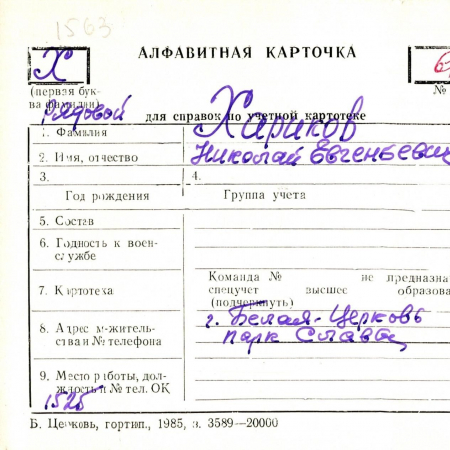 1563
АЛФАВИТНАЯ КАРТОЧКА
Х
(первая бук-
ва фамилии)
№
Рядовой
для справок по учетной картотеке
1. Фамилия Хариков
2. Имя, отчество Николай Евгеньевич
3. 4.
Год рождения Группа учета
5. Состав
6. Годность к воен-
службе
Команда № не предназна
7. Картотека спецучет высшее образова
(подчеркнуть)
8. Адрес м-житель-
ства и № телефона
г. Белая-Церковь
парк Славы
9. Место работы, дол-
жность и № тел. ОК
1525
Б. Церковь, гортип., 1985, з. 3589—20000